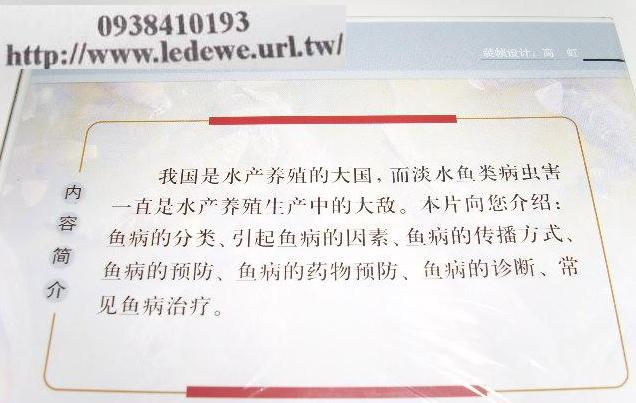 0938410193
http://www.ledewe.url.tw/
装帧设计：高 虹
内容简介
我国是水产养殖的大国，而淡水鱼类病虫害
一直是水产养殖生产中的大敌。本片向您介绍：
鱼病的分类、引起鱼病的因素、鱼病的传播方式、
鱼病的预防、鱼病的药物预防、鱼病的诊断、常
见鱼病治疗。